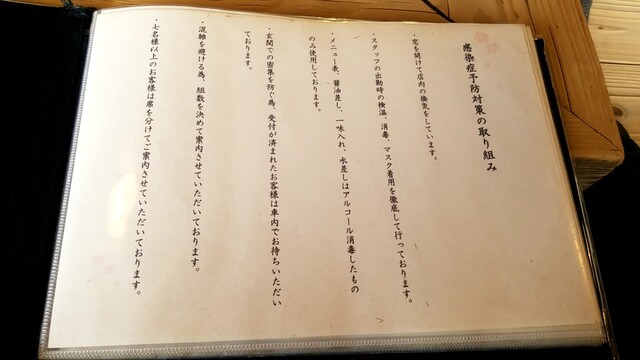 感染症予防対策の取り組み
・窓を開けて店内の換気をしています。
・スタッフの出勤時の検温、消毒、マスク着用を徹底して行っております。
・メニュー表、醤油差し、一味入れ、水差しはアルコール消毒したもの
のみ使用しております。
・玄関での密集を防ぐ為、受付が済まれたお客様は車内でお待ちいただい
ております。
・混雑を避ける為、組数を決めて案内させていただいております。
・七名様以上のお客様は席を分けてご案内させていただいております。